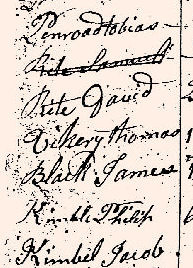 Penroad tobias
Rite Samuel
Rite David
Vikery thomas
Black James
Kimble Philip
Kimbel Jacob